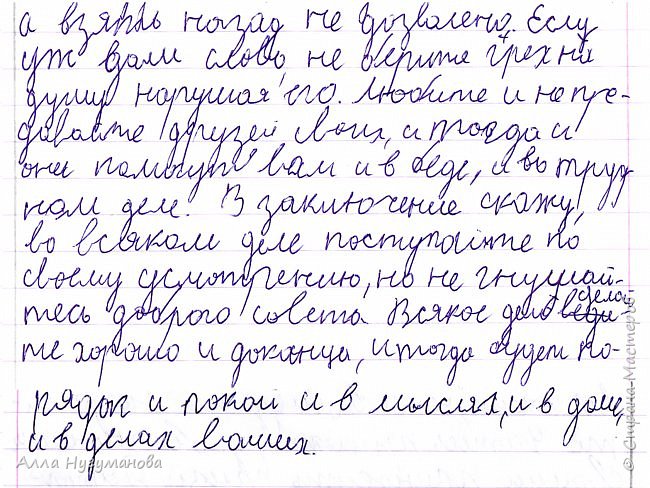 а взять назад не дозволено. Еслу
уж дали слово, не берите грех на
душу нарушая его. Любите и не пре-
давайте друзей своих, и тогда и
они помогут вам и в беде, и во труд
ном деле. В заключение скажу,
во всяком деле поступайте по
своему усмотрению, но не гнушай-
тесь доброго совета. Всякое дело сдела-
те хорошо и доканца, и тогда будет по-
рядок и покой и в мыслях, и в доме,
и в делах ваших.
Алла Нугуманова
© Страна Мастеров